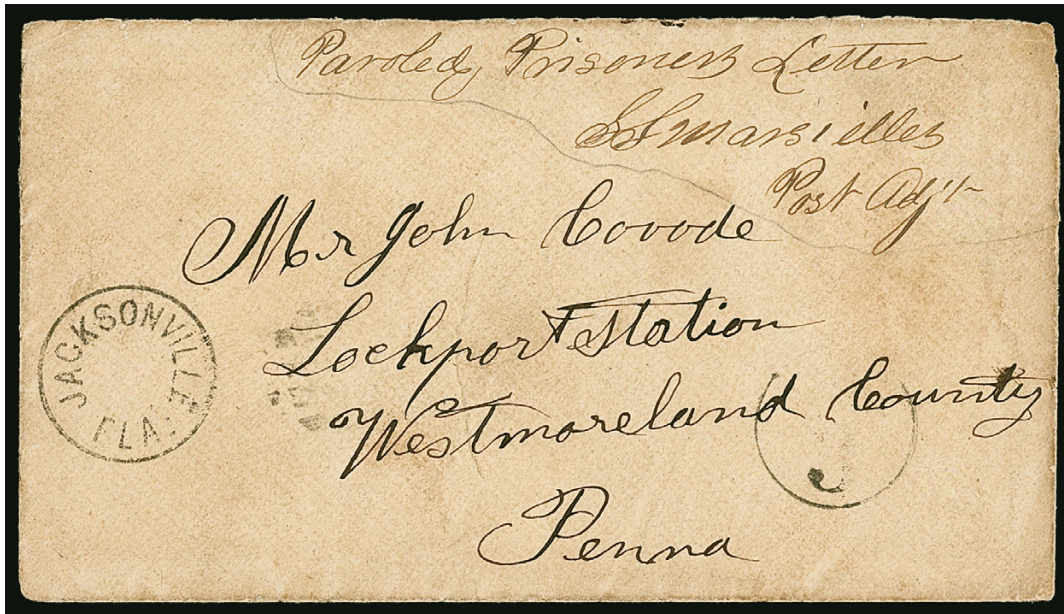 Paroled, Prisoners Letter
SS Marsielles
Post Adj't
Mr John Covode
Lockport Station
Westmoreland County
Penna
JACKSONVILLE
FLA.